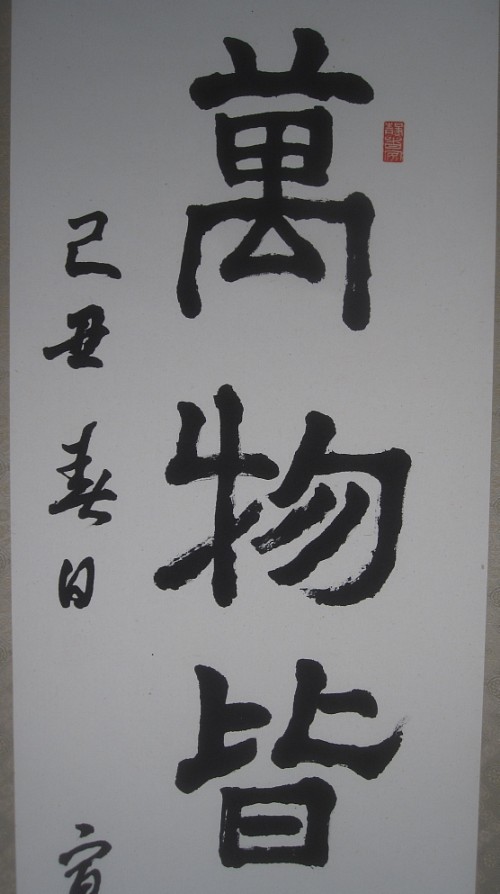 萬物皆
己丑春日